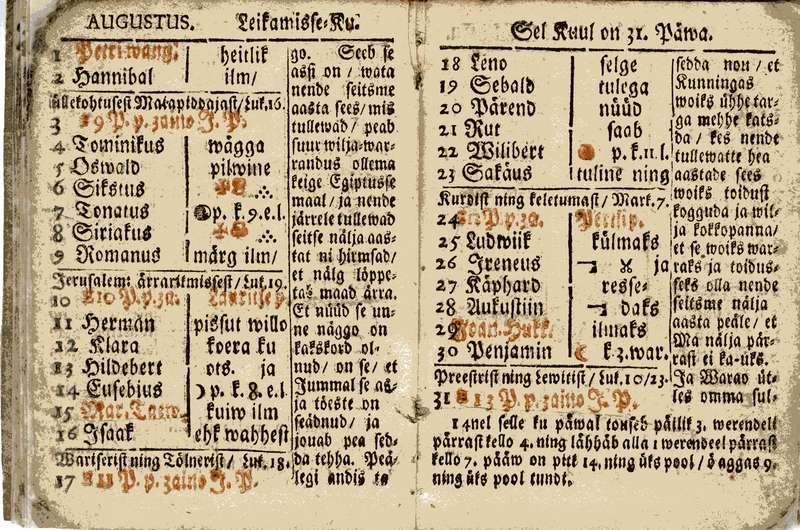 AUGUSTUS. Leikamisse-Ku.
1 Petri wang. heitlik
2 Hannibal ilm/
üllekohtusest Maiapiddajast/ Luk. 16.
3 9 P. p. zaino J. P.
4 Tominikus wägga
5 Oswald pilwine
6 Sikstus
7 Tonatus p. k. 9. e. l.
8 Siriakus
9 Romanus märg ilm/
Jerusalem: ärrarikmissest/ Luk. 19.
10 10 P. p. za. Lauritsep.
11 Herman pissut willo
12 Klara koera ku
13 Hildebert ots. ja
14 Eusebius p. k. 8. e. l
15 Mar. Taew. kuiw ilm
16 Isaak ehk wahhest
Wariserist ning Tölnerist/ Luk. 18.
17 11 P. p. zaino J. P.
go. Seeb se
assi on/ wata
nende seitsme
aasta sees/ mis
tullewad/ peab
suur wilja-war-
randus ollema
keige Egiptusse
maal/ ja nende
järrele tullewad
seitse nälja aas-
tat ni hirmsad/
et nälg löppe-
tab maad ärra.
Et nüüd se un-
ne näggo on
kakskord ol-
nud/ on se/ et
Jummal se as-
ja töeste on
seädnud/ ja
jouab pea sed-
da tehha. Peä-
legi andis ta
Sel Kuul on 31. Päwa.
18 Leno selge
19 Sebald tulega
20 Pärend nüüd
21 Rut saab
22 Wilibert p. k. 11. l.
23 Sakäus tuline ning
Kurdist ning keletumast/ Mark. 7.
24 12 P. p. za. Pertlip.
25 Ludwiik külmaks
26 Ireneus ja
27 Käphard resse-
28 Aukustiin daks
29 Joan. Hukk. ilmaks
30 Penjamin k. 3. war.
Preestrist ning Lewitist/ Luk. 10/23.
31 13 P. p. zaino J. P.
sedda nou/ et
Kunningas
woiks ühhe tar-
ga mehhe kats-
da/ kes nende
tullewatte hea
aastade sees
woiks toidust
kogguda ja wil-
ja kokkopanna/
et se woiks war-
raks ja toidus-
seks olla nende
seitsme nälja
aasta peäle/ et
Ma nälja pär-
rast ei ka-uks.
Ja Warao üt-
les omma sul-
14nel selle ku päwal touseb päiik 3. werendeli
pärrast kello 4. ning lähhäb alla 1 werendeel pärrast
kello 7. pääw on pitk 14. ning üks pool/ ö aggas 9.
ning üks pool tundi.